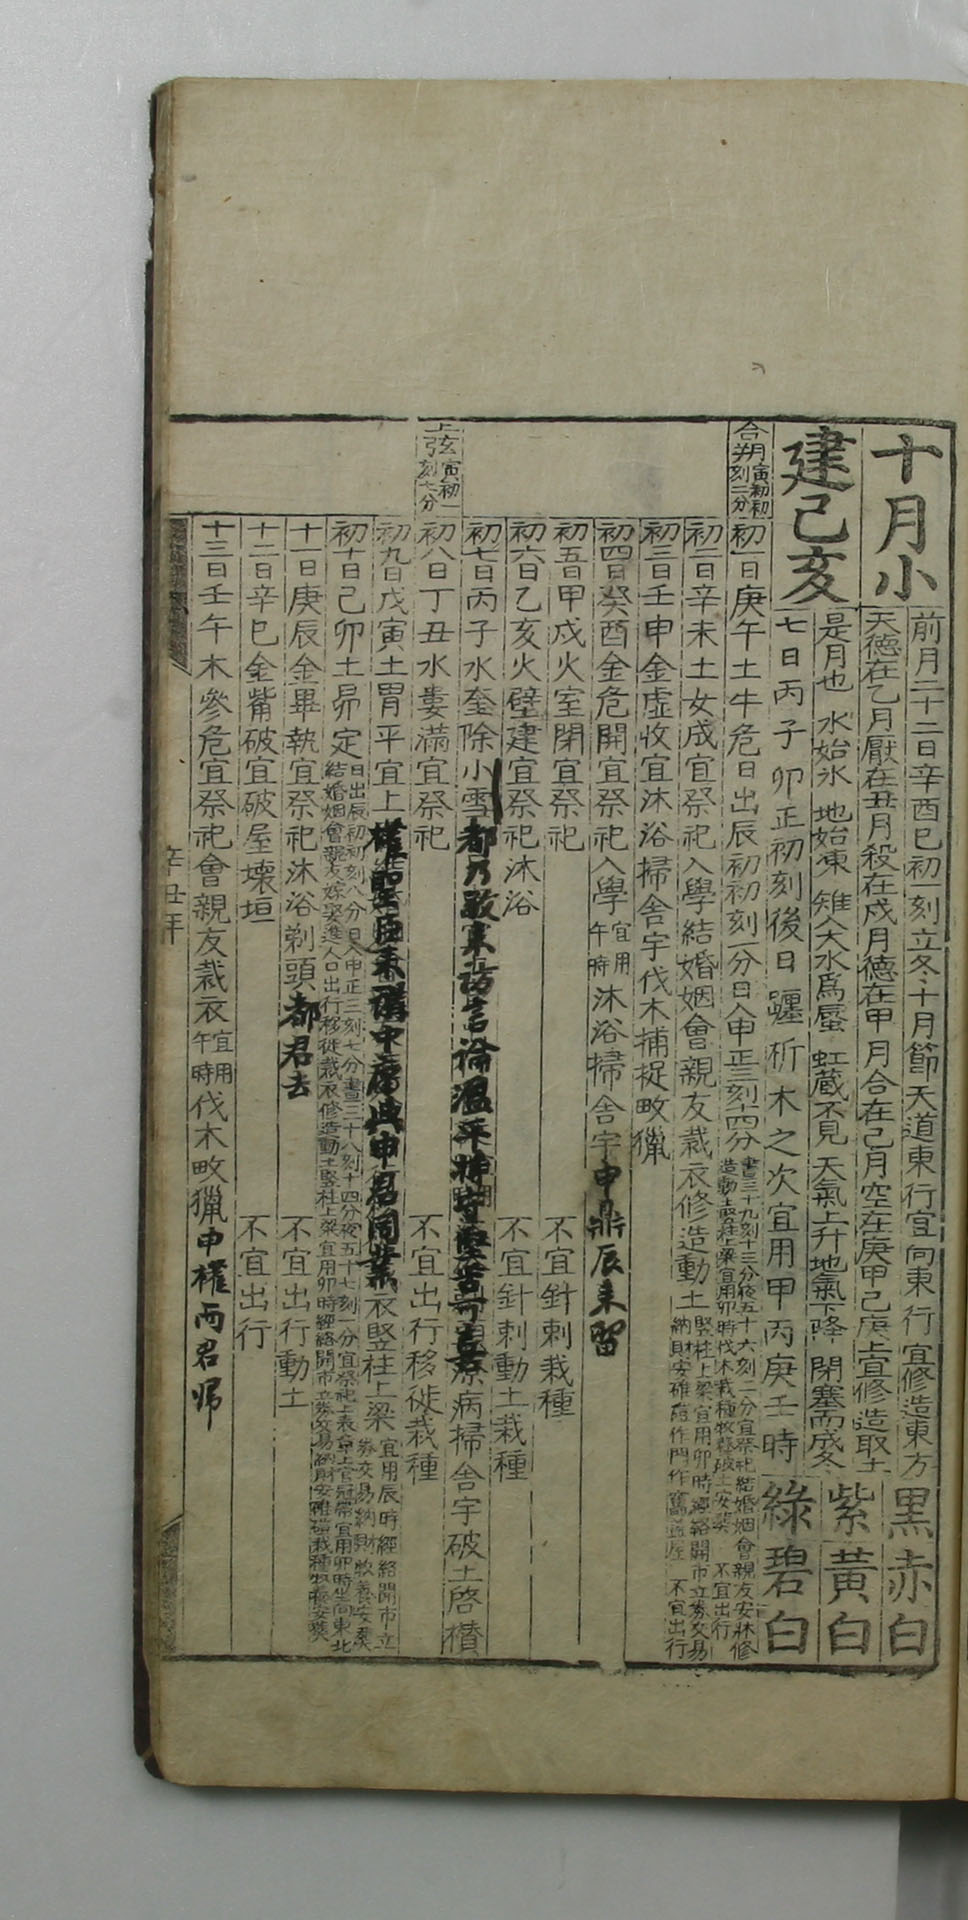 十月小
建己亥
前月二十二日辛酉巳初一刻立冬十月節天道東行宜向東行宜修造東方
天德在乙月厭在丑月殺在戌月德在甲月合在己月空在庚甲己庚上宜修造取土
是月也 水始氷 地始凍 雉入大水爲蜃 虹藏不見 天氣上升地氣下降 閉塞而成冬
七日丙子卯正初刻後日躔析木之次宜用甲丙庚壬時
黑赤白
紫黃白
綠碧白
合朔寅初初刻二分
初一日庚午土牛危日出辰初初刻一分日入申正三刻十四分晝三十九刻十三分夜五十六刻二分宜祭祀結婚姻會親友安牀修造動土竪柱上梁宜用卯時伐木栽種牧養破土安葬 不宜出行
初二日辛未土女成宜祭祀入學結婚姻會親友裁衣修造動土竪柱上梁宜用卯時經絡開市立券交易納財安碓磑 不宜出行
初三日壬申金虛收宜沐浴掃舍宇伐木捕捉畋獵
初四日癸酉金危開宜祭祀入學宜用午時沐浴掃舍宇申鼎辰來留
初五日甲戌火室閉宜祭祀 不宜針刺栽種
初六日乙亥火壁建宜祭祀沐浴 不宜針刺動土栽種
初七日丙子水奎除小雪都乃 來訪言論溫平 療病掃舍宇破土啓欑
上弦寅初一刻七分
初八日丁丑水婁滿宜祭祀 不宜出行移徙栽種
初九日戊寅土胃平宜上權聖臣來講中庸與申君同業衣竪柱上梁宜用辰時經絡開市立券交易納財牧養安葬
初十日己卯土昴定日出辰初初刻八分日入申正三刻七分晝三十八刻十四分夜五十七刻一分宜祭祀上表章上官冠帶宜用卯時坐向東北結婚姻會親友嫁娶進人口出行移徙裁衣修造動土竪柱上梁宜用卯時經絡開市立券交易納財安碓磑栽種牧養安葬
十一日庚辰金畢執宜祭祀沐浴剃頭都君去 不宜出行動土
十二日辛巳金觜破宜破屋壞垣 不宜出行
十三日壬午木參危宜祭祀會親友裁衣宜用午時伐木畋獵申權兩君歸
辛丑年